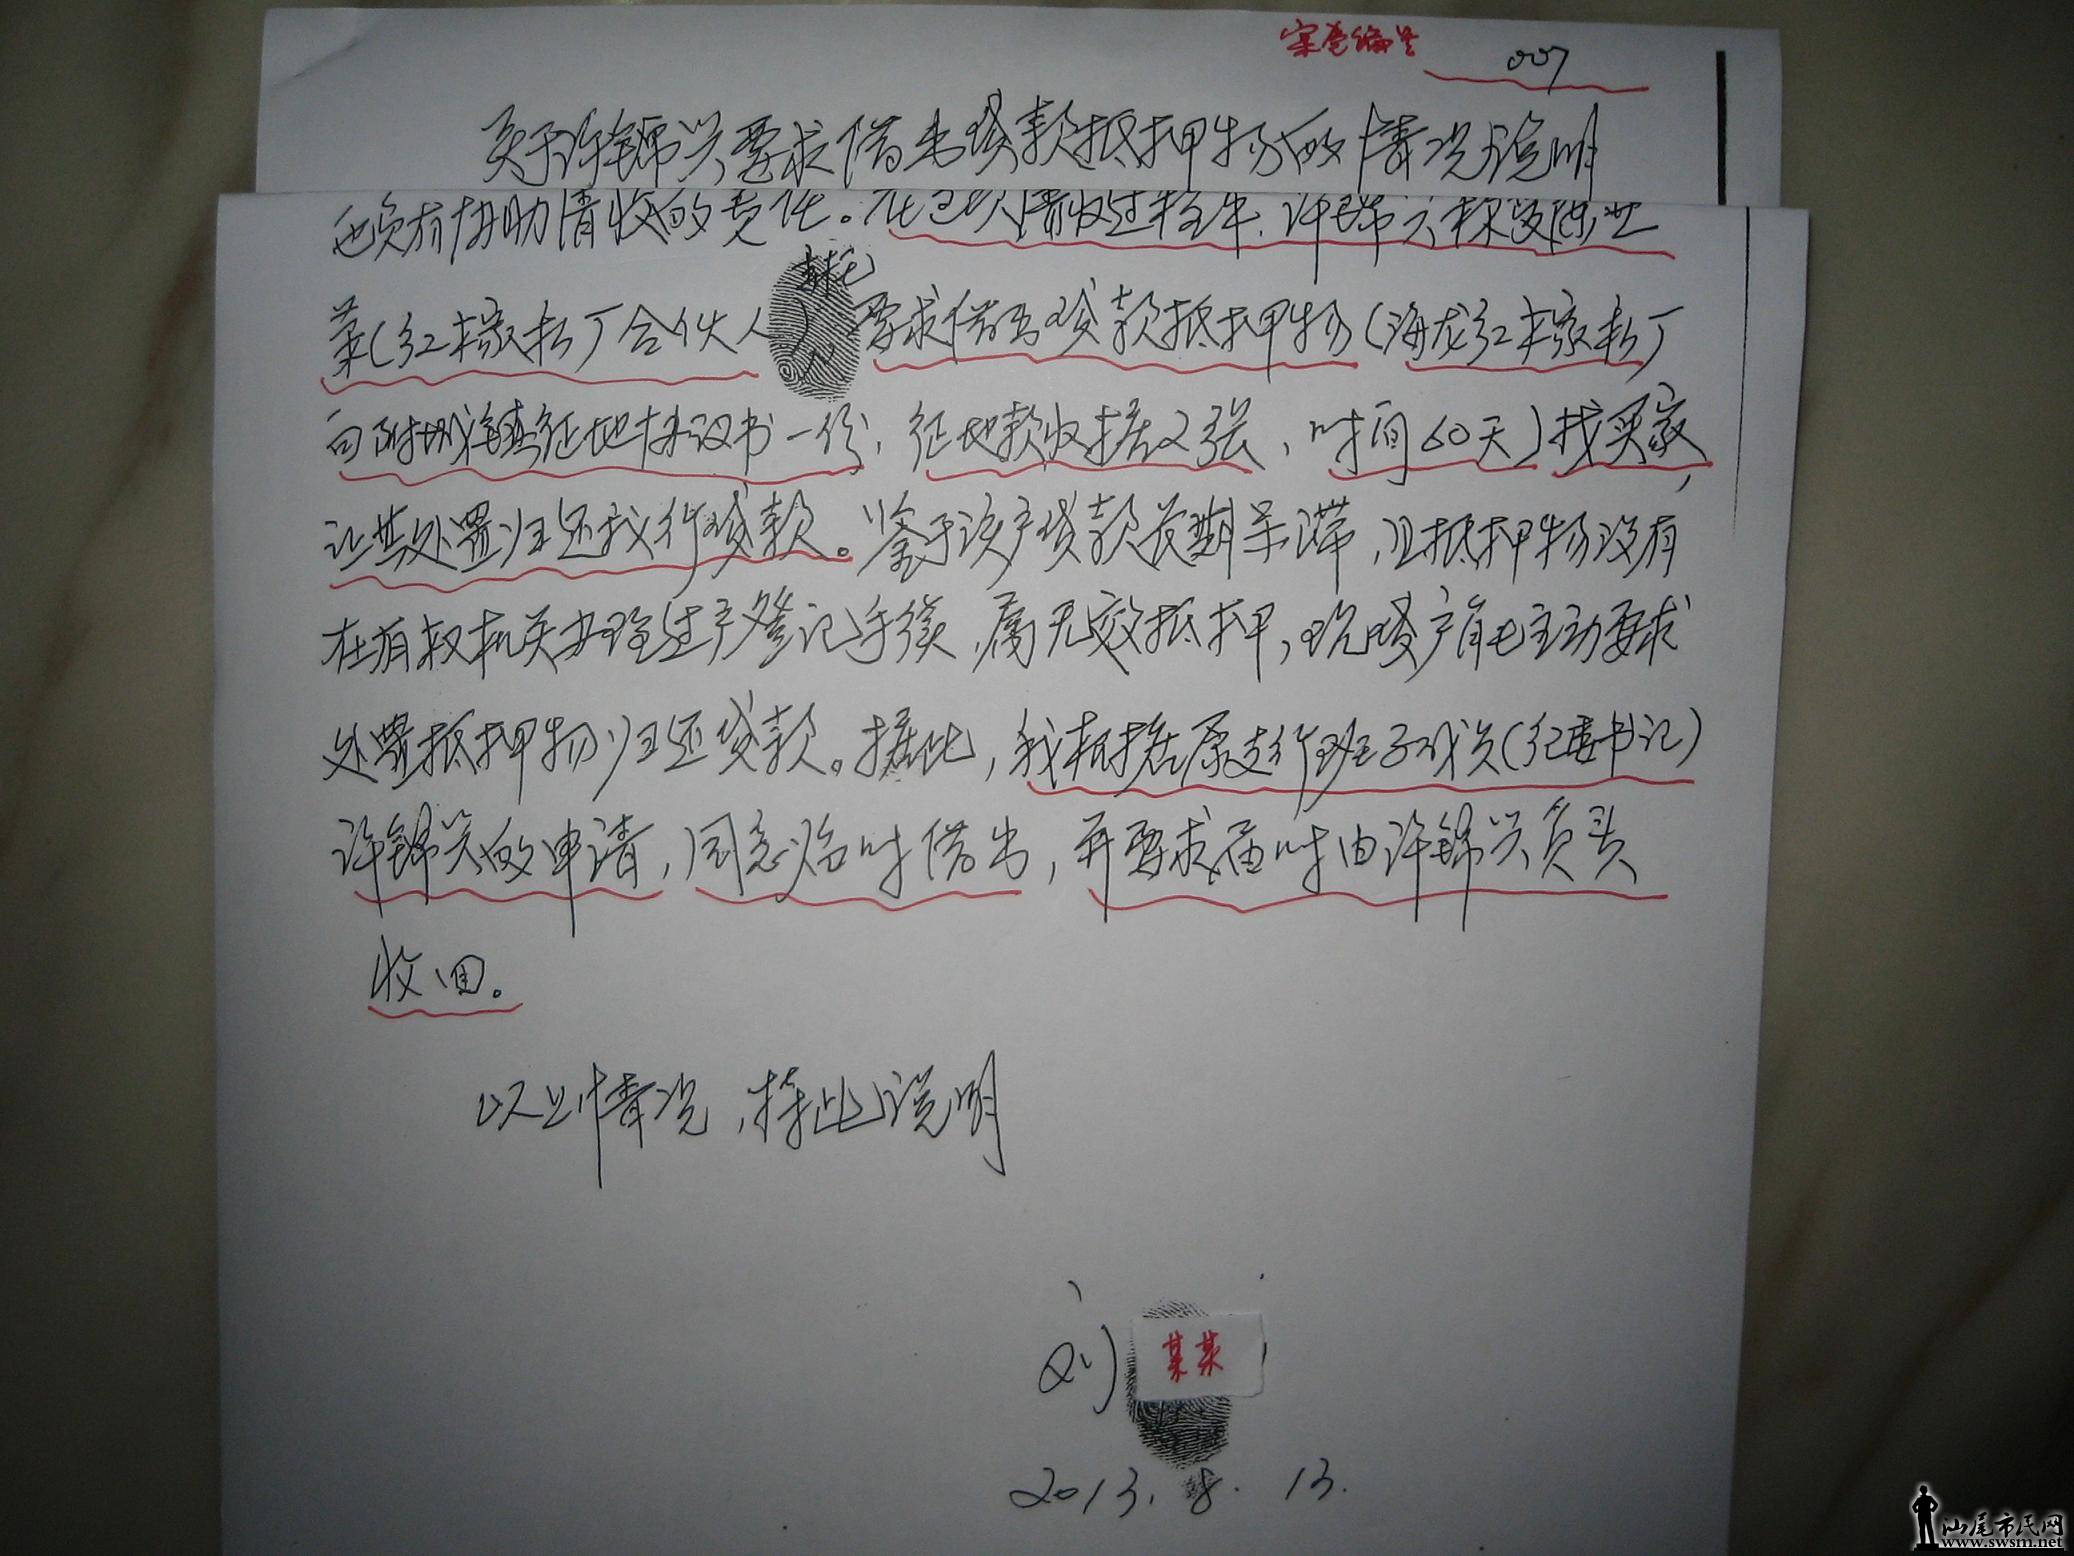 案卷编号 007
关于许锦兴要求借出贷款抵押物的情况说明
也负有协助清收的责任。在已次清收过程中,许锦兴称受陈业
委托
菜(红木家私厂合伙人)要求借出贷款抵押物(海龙红木家私厂
向附城镇征地协议书一份,征地款收据2张,时间60天)找买家,
让其处置归还我行贷款。鉴于该户贷款长期呆滞,且抵押物没有
在有权机关办理过户登记手续,属无效抵押,现贷户肯主动要求
处置抵押物归还贷款。据此,我根据原支行班子成员(纪委书记)
许锦兴的申请,同意临时借出,并要求届时由许锦兴负责
收回。
以上情况,特此说明
刘某某
2013.8.13.
汕尾市民网
www.swsm.net